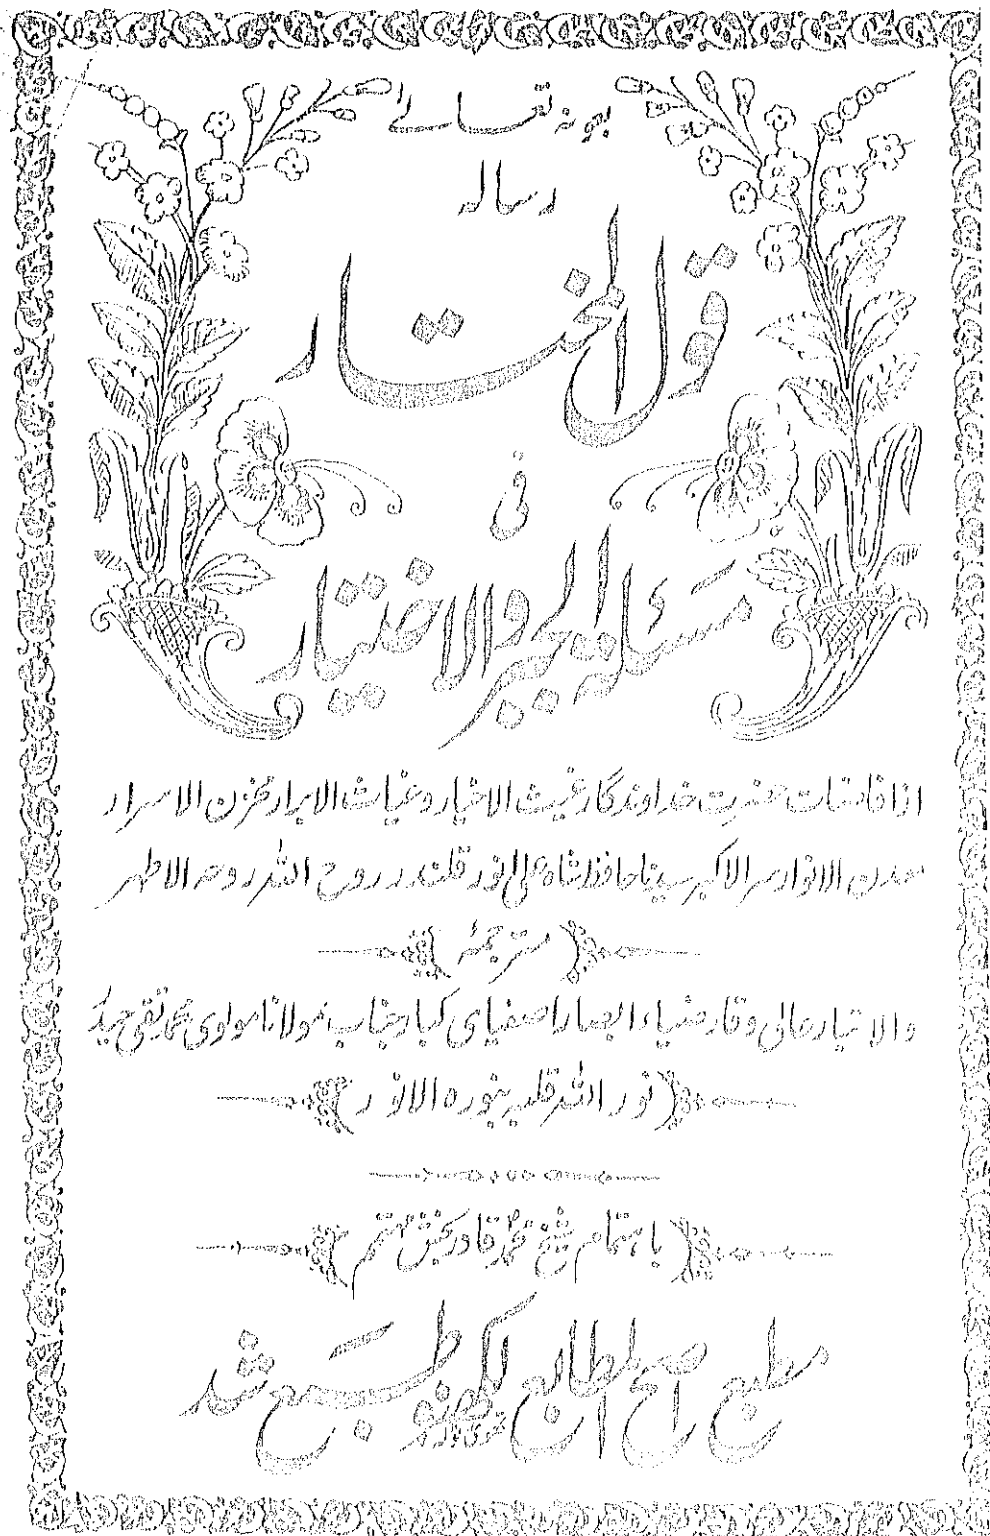 بعونہ تعالےٰ
رسالہ
قول المختار
فی
مسئلۃ الجبر والاختیار
از افاضات حضرت خداوندگار غیث الاخیار و غیاث الابرار مخزن الاسرار
معدن الانوار سر الاکبر سیدنا حافظ شاہ علی انور قلندر روح اللہ روحہ الاطہر
مترجمۂ
والا تبار عالی وقار ضیاء ابصار اصفیای کبار جناب مولانا مولوی محمد تقی حیدر
نور اللہ قلبہ بنورہ الانور
باہتمام شیخ محمد قادر بخش مہتمم
مطبع اصح المطابع لکھنو طبع شد